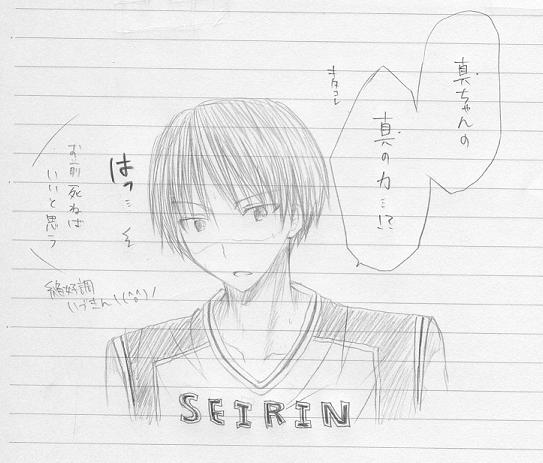 真ちゃんの
真の力…!?
キタコレ
はっ…!
お前死ねば
いいと思う
絶好調
いづきん\(^^)/
SEIRIN